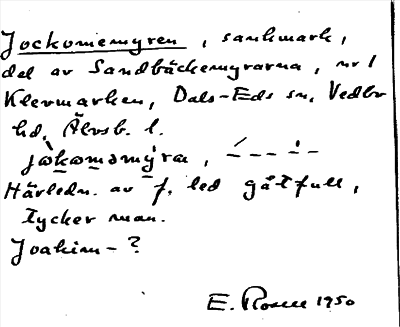 Jockomemyren, sankmark,
del av Sandbäckemyrarna, nr 1
Klevmarken, Dals-Eds sn, Vedbo
hd, Älvsb. l.
jòkoməmy̆ra,
Härledn. av f. led gåtfull,
tycker man.
Joakim - ?
E. Rosell 1950